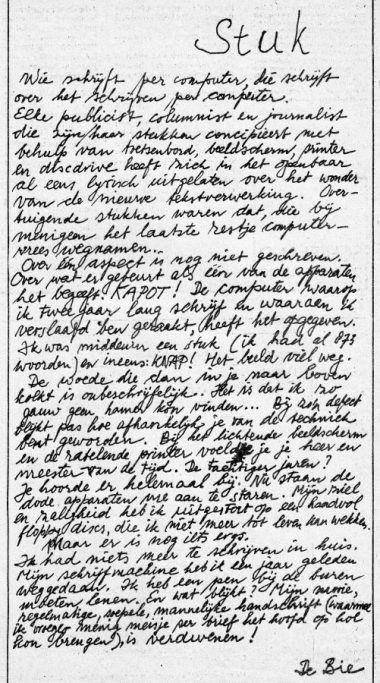 Stuk
Wie schrijft per computer, die schrijft
over het schrijven per computer.
Elke publicist, columnist en journalist
die zijn/haar stukken concipieert met
behulp van toetsenbord, beeldscherm, printer
en discdrive heeft zich in het openbaar
al eens lyrisch uitgelaten over het wonder
van de nieuwe tekstverwerking. Over-
tuigende stukken waren dat, die bij
menigeen het laatste restje computer-
vrees wegnamen...
Over één aspect is nog niet geschreven.
Over wat er gebeurt als één van de apparaten
het begeeft. KAPOT! De computer waarop
ik twee jaar lang schrijf en waaraan ik
verslaafd ben geraakt, heeft het opgegeven.
Ik was middenin een stuk (ik had al 873
woorden) en ineens: KNAP! Het beeld viel weg.
De woede die dan in je naar boven
kolkt is onbeschrijfelijk. Het is dat ik zo
gauw geen hamer kon vinden... Bij zo'n defect
blijkt pas hoe afhankelijk je van de techniek
bent geworden. Bij het lichtende beeldscherm
en de ratelende printer voelde je je heer en
meester van de tijd. De tachtiger jaren?
Je hoorde er helemaal bij. Nu staan de
dode apparaten me aan te staren. Mijn ziel
en zaligheid heb ik uitgestort op een handvol
floppy discs, die ik niet meer tot leven kan wekken.
Maar er is nog iets ergs.
Ik had niets meer te schrijven in huis.
Mijn schrijfmachine heb ik een jaar geleden
weggedaan. Ik heb een pen bij de buren
moeten lenen. En wat blijkt? Mijn mooie,
regelmatige, soepele, mannelijke handschrift (waarmee
ik menig meisje per brief het hoofd op hol
kon brengen), is verdwenen!
De Bie